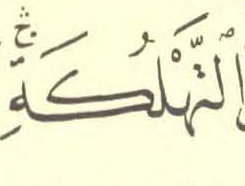 اَ۬لتَّهْلُكَةِۖ